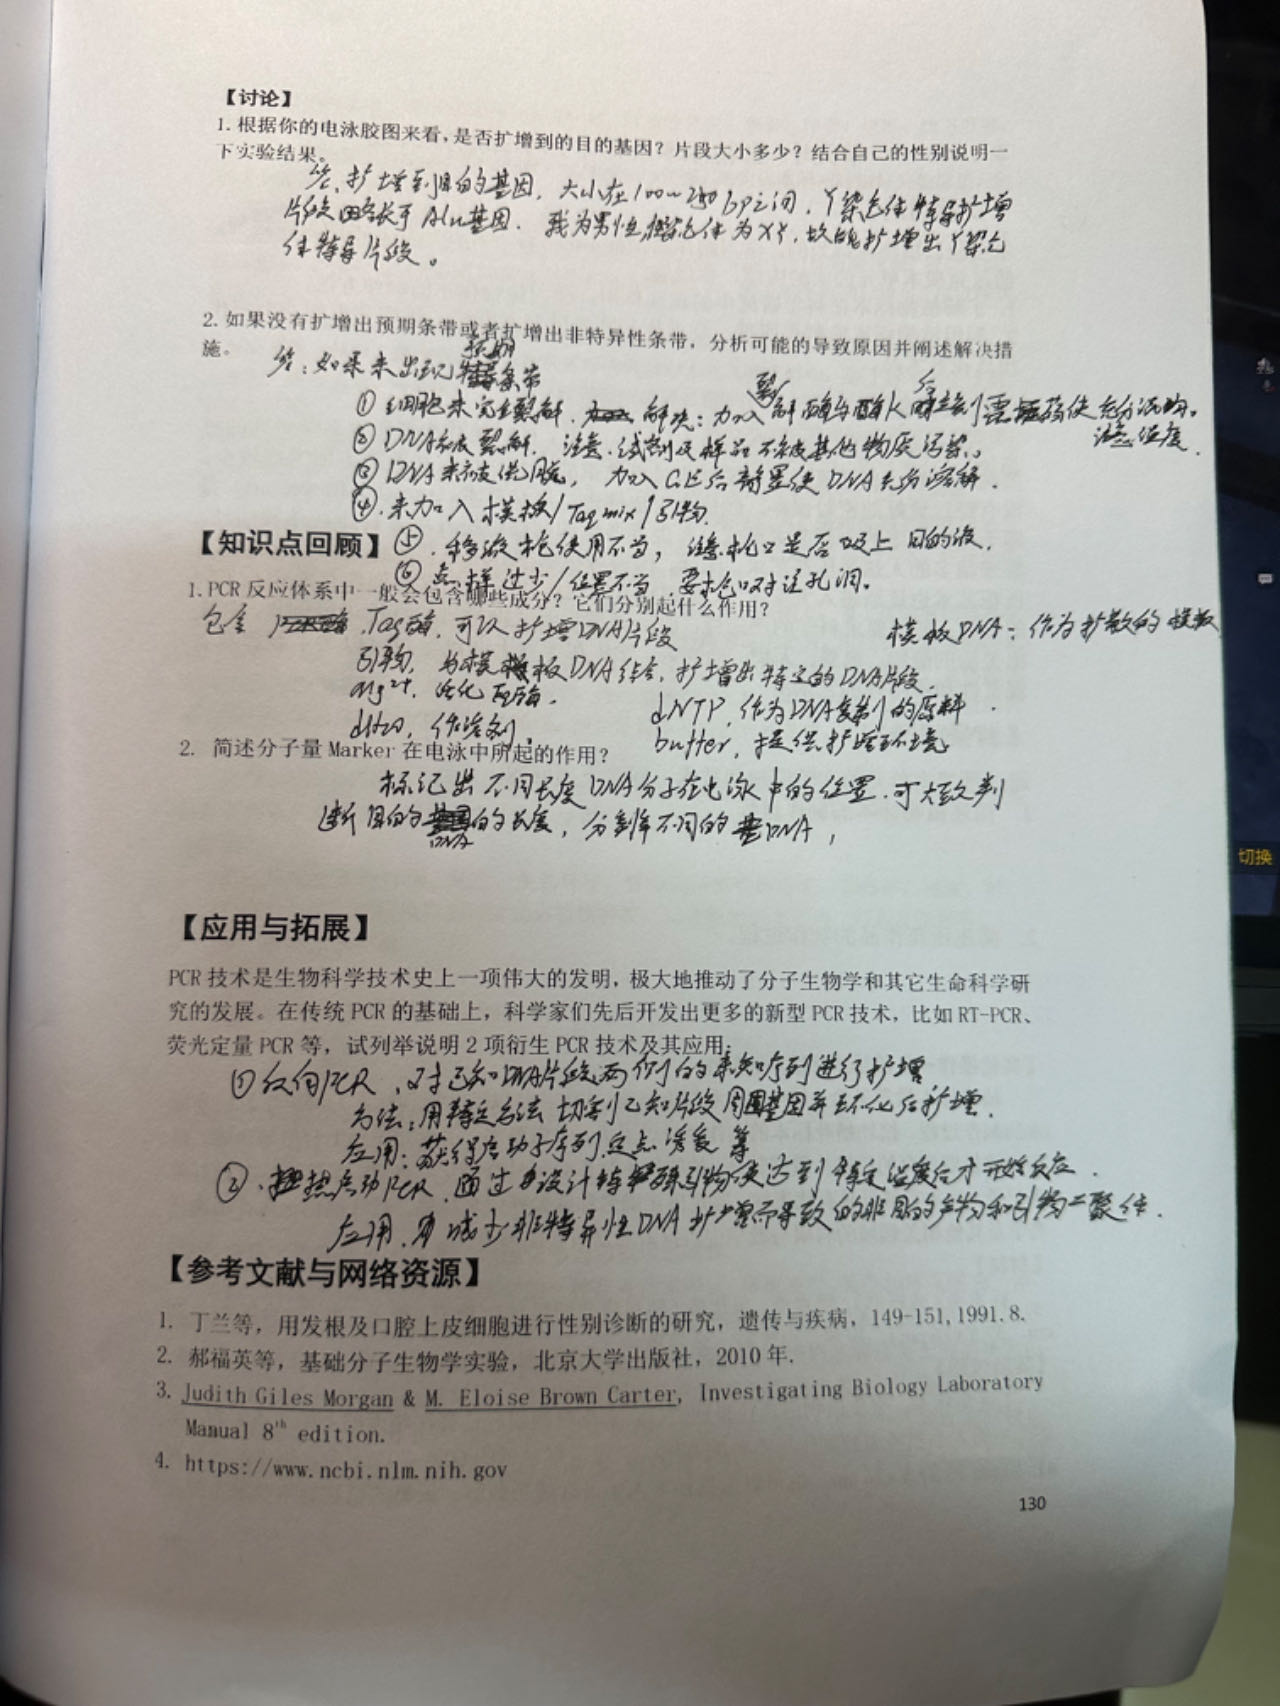 【讨论】
1.根据你的电泳胶图来看，是否扩增到的目的基因？片段大小多少？结合自己的性别说明一
下实验结果。
答、扩增到目的基因，大小在100~250bp之间，Y染色体特异扩增
片段略长于Alu基因．我为男性，染色体为XY，故能扩增出Y染色
体特异片段。
2.如果没有扩增出预期条带或者扩增出非特异性条带，分析可能的导致原因并阐述解决措
施。
答：如果未出现预期条带
①细胞未完全裂解．解决：加入裂解酶与酶K后 需 使充分混匀。
注意温度．
②DNA被裂解．注意试剂及样品不能被其他物质污染。
③DNA未被洗脱，加入GE后静置使DNA充分溶解．
④．未加入模板/Taq mix/引物．
【知识点回顾】
⑤．移液枪使用不当，注意枪口是否吸上目的液．
⑥点样过少/位置不当，要枪口对准孔洞。
1.PCR反应体系中一般会包含哪些成分？它们分别起什么作用？
包含 Taq酶．可以扩增DNA片段
模板DNA：作为扩散的模板
引物．与模板DNA结合，扩增出特定的DNA片段．
mg²⁺．活化 酶．
dNTP，作为DNA复制的原料．
dH₂O，作溶剂，
buffer，提供扩增环境
2. 简述分子量Marker在电泳中所起的作用？
标记出不同长度DNA分子在电泳中的位置．可大致判
断目的DNA的长度，分离不同的DNA，
【应用与拓展】
PCR技术是生物科学技术史上一项伟大的发明，极大地推动了分子生物学和其它生命科学研
究的发展。在传统PCR的基础上，科学家们先后开发出更多的新型PCR技术，比如RT-PCR、
荧光定量PCR等，试列举说明2项衍生PCR技术及其应用：
①反向PCR，对已知DNA片段两侧的未知序列进行扩增
方法：用特定方法切割已知片段周围基因并环化后扩增．
应用：获得启动子序列，定点诱变等
②．热启动PCR．通过设计特殊引物使达到特定温度后才开始反应．
应用．减少非特异性DNA扩增而导致的非目的产物和引物二聚体．
【参考文献与网络资源】
1. 丁兰等，用发根及口腔上皮细胞进行性别诊断的研究，遗传与疾病，149-151,1991.8.
2. 郝福英等，基础分子生物学实验，北京大学出版社，2010年.
3. Judith Giles Morgan & M. Eloise Brown Carter, Investigating Biology Laboratory
Manual 8th edition.
4. https://www.ncbi.nlm.nih.gov
130
切换